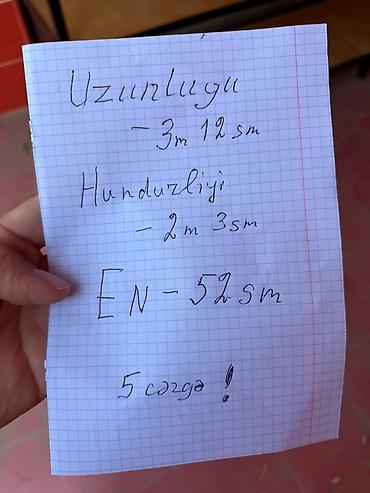 Uzunluyu
- 3m 12 sm
Hundurliyi
- 2m 3sm
EN - 52 sm
5 cərgə!